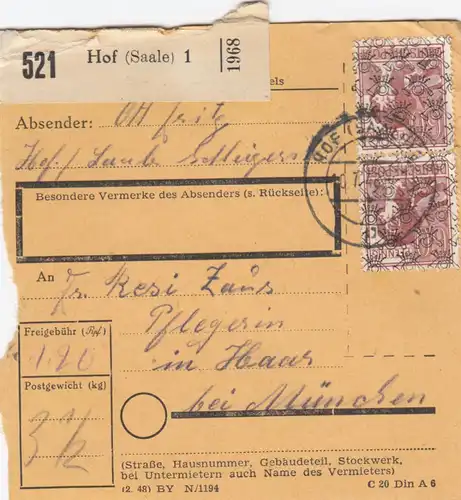 521 Hof (Saale) 1 1968
els
Absender: Ott Fritz
Hof / Saale
Besondere Vermerke des Absenders (s. Rückseite):
HOF (
An Fr. Resi Zaus
Pflegerin
in Haar
bei München
Freigebühr (Rpf)
1.20
Postgewicht (kg)
3 ½
(Straße, Hausnummer, Gebäudeteil, Stockwerk,
bei Untermietern auch Name des Vermieters)
(2. 48) BY N/1194 C 20 Din A 6